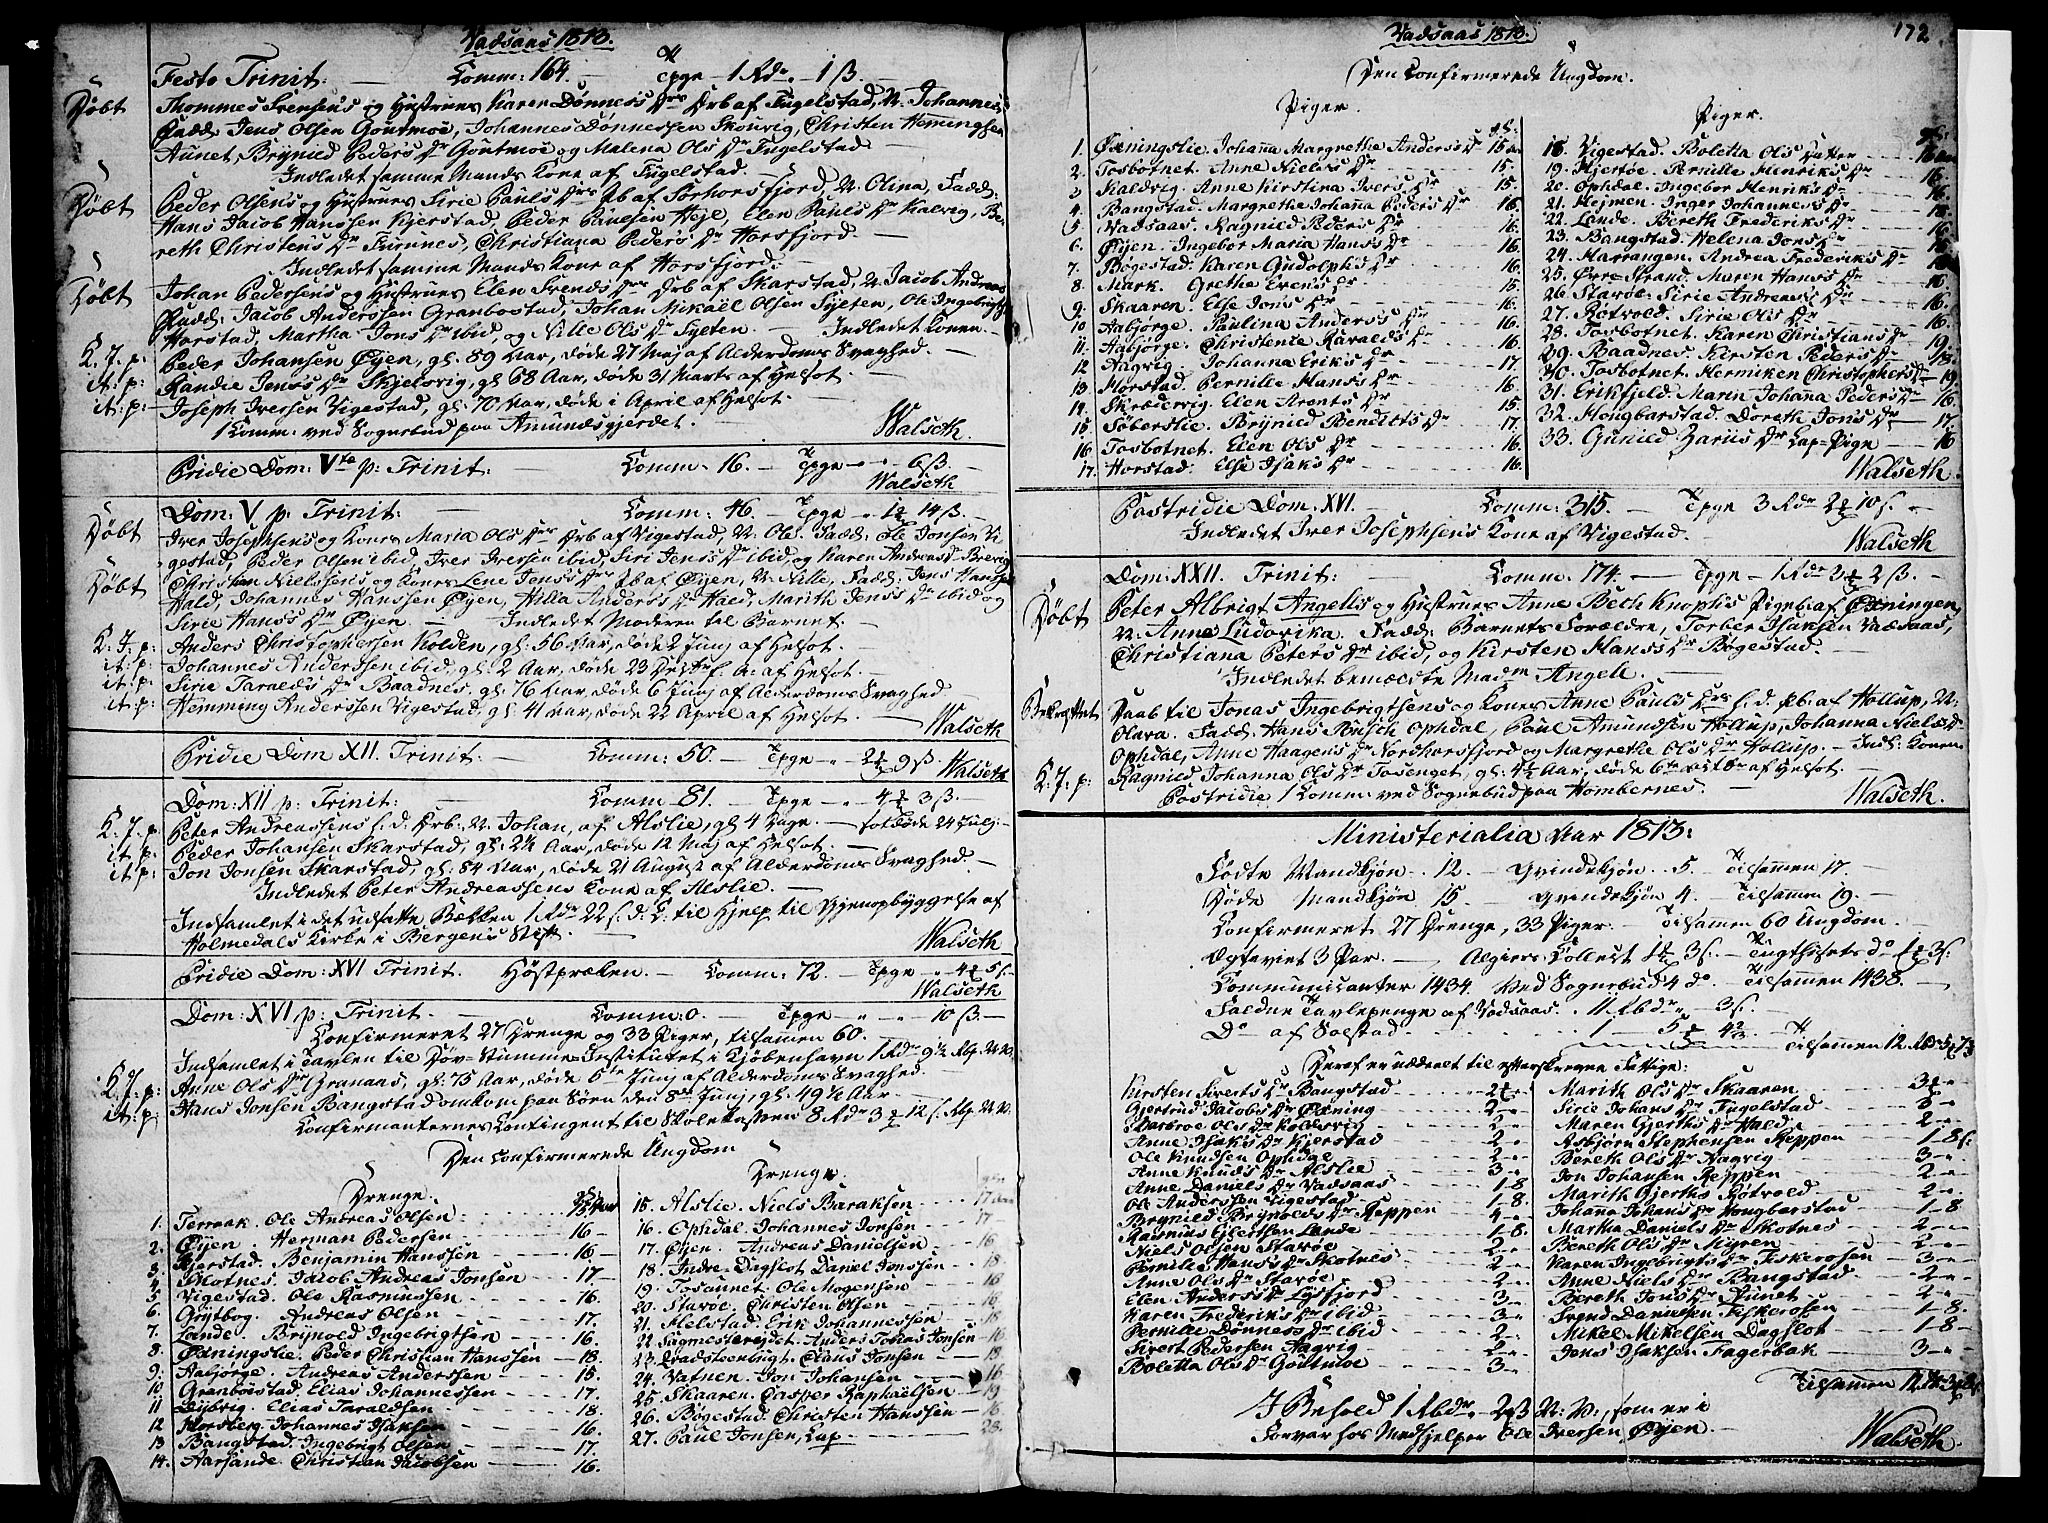 Vadsaas 1813.
Festo Trinit: Comm: 164. Tpge - 1 Rdr. - 1 ß.
Døbt Thommes Svensens og Hustrues Karen Dønnes's Drs Drb af Fugelstad, N. Johannes
Fadd: Jens Olsen Goutmoe, Johannes Dønnessen Skouvig, Christen Hemingsen
Aunet, Brynild Peders Dr Goutmoe og Malena Ols Dr Fugelstad
Indledet samme Mands Kone af Fugelstad.
Døbt Peder Olsens og Hustrues Sirie Pauls Drs Pb af Sørhorsfjord, N. Olina, Fadd:
Hans Jacob Hanssen Kjerstad, Peder Paulsen Heje, Elen Pauls Dr Kalvig, Be-
reth Christens Dr Turnnes, Christiana Peders Dr Horsfjord.
Indledet samme Mands Kone af Horsfjord.
Døbt Johan Pedersens og Hustrues Elen Svends Drs Drb af Skarstad, N. Jacob Andreas
Fadd: Jacob Anderssen Granbostad, Johan Mikaël Olsen Sylten, Ole Ingebrigts
Horstad, Martha Jons Dr ibid, og Nille Ols Dr Sylten. Indledet Konen.
K. J. p: Peder Johansen Øyen, gl: 89 Aar, døde 27 Maj af Alderdoms Svaghed.
it: p: Randie Jens's Dr Skjelsvig, gl 68 Aar, døde 31 Marts af Helsot.
it: p: Joseph Iversen Vigestad, gl: 70 Aar, døde i April af Helsot.
1 Comm: ved Sognebud paa Amundsgjerdet. Walseth.
Pridie Dom: Vte p: Trinit: Comm: 16. Tpge - 6 ß.
Walseth
Dom: V p: Trinit: Comm: 46. Tpge 1 14 ß.
Døbt Iver Josephsens og Kones Maria Ols Drs Drb af Vigestad, N. Ole. Fadd: Ole Jonsen Vi
gestad, Peder Olsen ibid, Iver Iversen ibid, Siri Jens's Dr ibid og Karen Andreas Dr Brevig
Døbt Christian Nielssens og Kones Lene Jens's Drs Pb af Øyen, N. Nille, Fadd: Jens Hansen
Hald, Johannes Hanssen Øyen, Anders's Dr Hald, Marith Jens's Dr ibid og
Sirie Hans's Dr Øyen. Indledet Moderen til Barnet.
K. J. p: Anders Christophersen Kolden, gl: 56 Aar, døde 2 Junj af Helsot.
it: p: Johannes Anderssen ibid, gl: 2 Aar, døde 23 af Helsot.
it: p: Sirie Taralds Dr Baadnes, gl: 76 Aar, døde 6 Junj af Alderdoms Svaghed
it: p: Hemming Anderssen Vigestad, gl: 41 Aar, døde 22 April af Helsot. Walseth
Pridie Dom XII. Trinit: Comm: 50. Tpge 2 9 ß Walseth
Dom: XII p: Trinit: Comm 81. Tpge 4 3 ß.
K. J. p. Peter Andreassens Drb: N. Johan, af Alslie, gl: 4 Dage. døde 24 Julj.
it: p: Peder Johansen Skarstad, gl: 2½ Aar, døde 12 Maj af Helsot.
it: p: Jon Jonsen Skarstad, gl: 84 Aar, døde 21 August af Alderdoms Svaghed.
Indledet Peter Andreassens Kone af Alslie.
Indsamlet i det udsatte Bækken 1 Rdr 22 s. d. C. til Hjelp til Gjenopbyggelse af
Holmedals Kirke i Bergens Stift. Walseth
Pridie Dom: XVI Trinit. Høstpræken. Comm: 72. Tpge 4 5 s.
Walseth
Dom: XVI p: Trinit: Comm: 0. Tpge 10 ß.
Confirmeret 27 Drenge og 33 Piger, tilsamen 60.
Indsamlet i Tavlen til Døv-Stumme-Institutet i Kjøbenhavn 1 Rdr 9½ Rbs. N. V.
K. J. p: Anne Ols Dr Granaas, gl: 75 Aar, døde 5te Junj af Alderdoms Svaghed.
it: p: Hans Jonsen Bangstad omkom paa Søen den 8de Junj, gl: 49½ Aar
Confirmanternes Contingent til Skolekassen 8 Rdr 3 12 s. Rbs. N. V.
Den Confirmerede Ungdom
Drenge.
1. Terraak. Ole Andreas Olsen
2. Øyen. Herman Pedersen 16
3. Kjerstad. Benjamin Hanssen 16
4. Skotnes. Jacob Andreas Jonsen 17
5. Vigestad. Ole Rasmussen 16.
6. Grytbog. Andreas Olsen 17.
7. Lande. Brynold Ingebrigtsen 16.
8. Øxningslie. Peder Christian Hanssen 18.
9. Aabjørge. Andreas Anderssen 15.
10. Granbostad. Elias Johannessen 17.
11. Elias Taraldsen 18.
12. Horsberg. Johannes Isaksen 16.
13. Bangstad. Ingebrigt Olsen 17.
14. Aarsande. Christian Jacobsen 16.
Drenge.
15. Alslie. Niels Baraksen 17
16. Ophdal. Johannes Jonsen 17
17. Øyen. Andreas Danielsen 16
18. Indre-Dagslot Daniel Jonssen 18
19. Tosaunet. Ole Mogensen 16
20. Stavøe. Christen Olsen 16
21. Helstad. Erik Johannessen 18
22. Sagmesterejdet. Anders Tobias Jonsen 16
23. Qvadsteenbrigt. Claus Jonsen 18
24. Vatnen. Jon Johansen 16
25. Skaaren. Casper Raphaëlsen 19
26. Bøgestad. Christen Hanssen 16
27. Paul Jonsen, Lap 23.
Vadsaas 1813. 172
Den Confirmerede Ungdom.
Piger.
1. Øxningslie. Johaña Margrethe Anders's Dr 15
2. Tosbotnet. Anne Niels's Dr 15.
3. Kaldvig. Anne Kirstina Ivers's Dr 15.
4. Bangstad. Margrethe Johaña Peders Dr 16.
5. Vadsaas. Ragnild Peders Dr 16.
6. Øyen. Ingebor Maria Hans's Dr 16.
7. Bøgestad. Karen Gudolphs Dr 16.
8. Mark. Grethe Evens Dr 15.
9. Skaaren. Else Jons Dr 16.
10. Aabjørge. Paulina Anders's Dr 16.
11. Aabjørge. Christenie Haralds Dr 16.
12. Aagvig. Johanna Eriks Dr 17.
13. Horstad. Pernille Hans's Dr 16.
14. Skrædervig. Elen Arents Dr 15.
15. Søberslie. Brynild Bendicts Dr 17.
16. Tosbotnet. Elen Ols Dr 16.
17. Horstad. Else Isaks Dr 16.
Piger.
18. Vigestad. Boletta Ols Datter 16
19. Hjertøe. Pernille Henriks Dr 16.
20. Ophdal. Ingebor Henriks Dr 16.
21. Hejmen. Inger Johannes's Dr 18.
22. Lande. Bereth Frederiks Dr 16.
23. Bangstad. Helena Jons Dr 16.
24. Harrangen. Andrea Frederiks Dr
25. Øvre Strand. Maren Hans's Dr 16.
26. Stavøe. Sirie Andreas's Dr 16.
27. Røtvold. Sirie Ols Dr 16.
28. Tosbotnet. Karen Christians Dr 19.
29. Baadnes. Kirsten Peders Dr 18.
30. Tosbotnet. Hermiken Christophers Dr 19.
31. Eriksfjeld. Marin Johana Peders Dr 16.
32. Hongbarstad. Doreth Jons Dr 17.
33. Gunild Zarius Dr Lap-Pige 16
Walseth
Postridie Dom: XVI. Comm: 315. Tpge 3 Rdr 2 10 s.
Indledet Iver Josephsens Kone af Vigestad. Walseth
Dom: XXII. Trinit: Comm: 174. Tpge - 1 Rdr 3 2 ß.
Døbt Peter Albrigt Angells og Hustrues Anne Beth Knophs Pigeb: af Øxningen,
N. Anna Ludovika. Fadd: Barnets Forældre, Torber Isaksen Vadsaas,
Christiana Peters Dr ibid, og Kirsten Hans's Dr Bøgestad.
Indledet bemældte Madm Angell.
Bekræftet Daab til Jonas Ingebrigtsens og Kones Anne Pauls Drs Pb: af Hollup, N:
Olava. Fadd: Hans Busch Ophdal, Paul Amundsen Hollup, Johanna Niels's Dr
Ophdal, Anne Haagens Dr Nordhorsfjord og Margrethe Ols Dr Hollup. Indl: Konen
K: J: p: Ragnild Johanna Ols Dr Tosenget, gl: 4½ Aar, døde 6te Octbr af Helsot.
Postridie 1 Comm: ved Sognebud paa Hombernes. Walseth.
Ministerialia Aar 1813:
Fødte Mandkjøn 12. Qvindekjøn 5. Tilsamen 17.
Døde Mandkjøn 15. Qvindekjøn 4. Tilsamen 19.
Confirmeret 27 Drenge, 33 Piger. Tilsamen 60 Ungdom.
Copuleret 3 Par. Algiers Collect 3 s. Tugthusets do 3 s.
Communicanter 1434. Ved Sognebud 4 do Tilsamen 1438.
Faldne Tavlepenge af Vadsaas. 11 Rbdr 3 s.
Do af Solstad 1 5 4⅔
Tilsamen 12 Rbdr
Deraf er uddeelt til efterskrevne Fattige:
Kirsten Siverts Dr Bangstad 2
Gjertrud Jacobs Dr Øxning 2
Ols Dr Koldsvig 2
Anne Isaks Dr Kjerstad 2
Ole Knudsen Ophdge 2
Anne Knuds Dr Alslie 3
Anne Daniels Dr Vadsaas 1-8
Ole Anderssen Vigestad 1-8.
Brynild Brynolds Dr Reppen 4
Rasmus Gjertsen Lande 1-8.
Niels Olsen Stavøe 2
Pernille Hans's Dr Skotnes 2
Anne Ols Dr Stavøe 2
Elen Anders's Dr Lysfjord 3
Karen Frederiks Dr ibid 3
Pernille Dønnes's Dr ibid 2
Sivert Pedersen Aagvig 2
Boletta Ols Dr Goutmoe 3
Marith Ols Dr Skaaren 3
Sirie Johans Dr Fugelstad 3
Maren Gjerths Dr Hald 2
Asbjørn Stephensen Reppen 1-8 s.
Bereth Ols Dr Aagvig 3
Jon Johansen Reppen 2
Marith Gjerths Dr Røtvold 2
Johana Johans Dr Hongbarstad 1-8
Martha Daniels Dr Skotnes 2
Bereth Ols Dr Myren 2
Karen Ingebrigts Dr Fiskerosen 3
Anne Niels Dr Bangstad 2
Bereth Jons Dr Aunet 2
Svend Danielsen Fiskerosen 1-8.
Mikel Mikelsen Dagslot 1-8
Jens Isaksen Fagerbak 3
Tilsamen 12
I Behold 1 Rbdr. 2 3 N: V., som er i
Forvar hos Medhjelper Ole Iversen Øyen. Walseth.